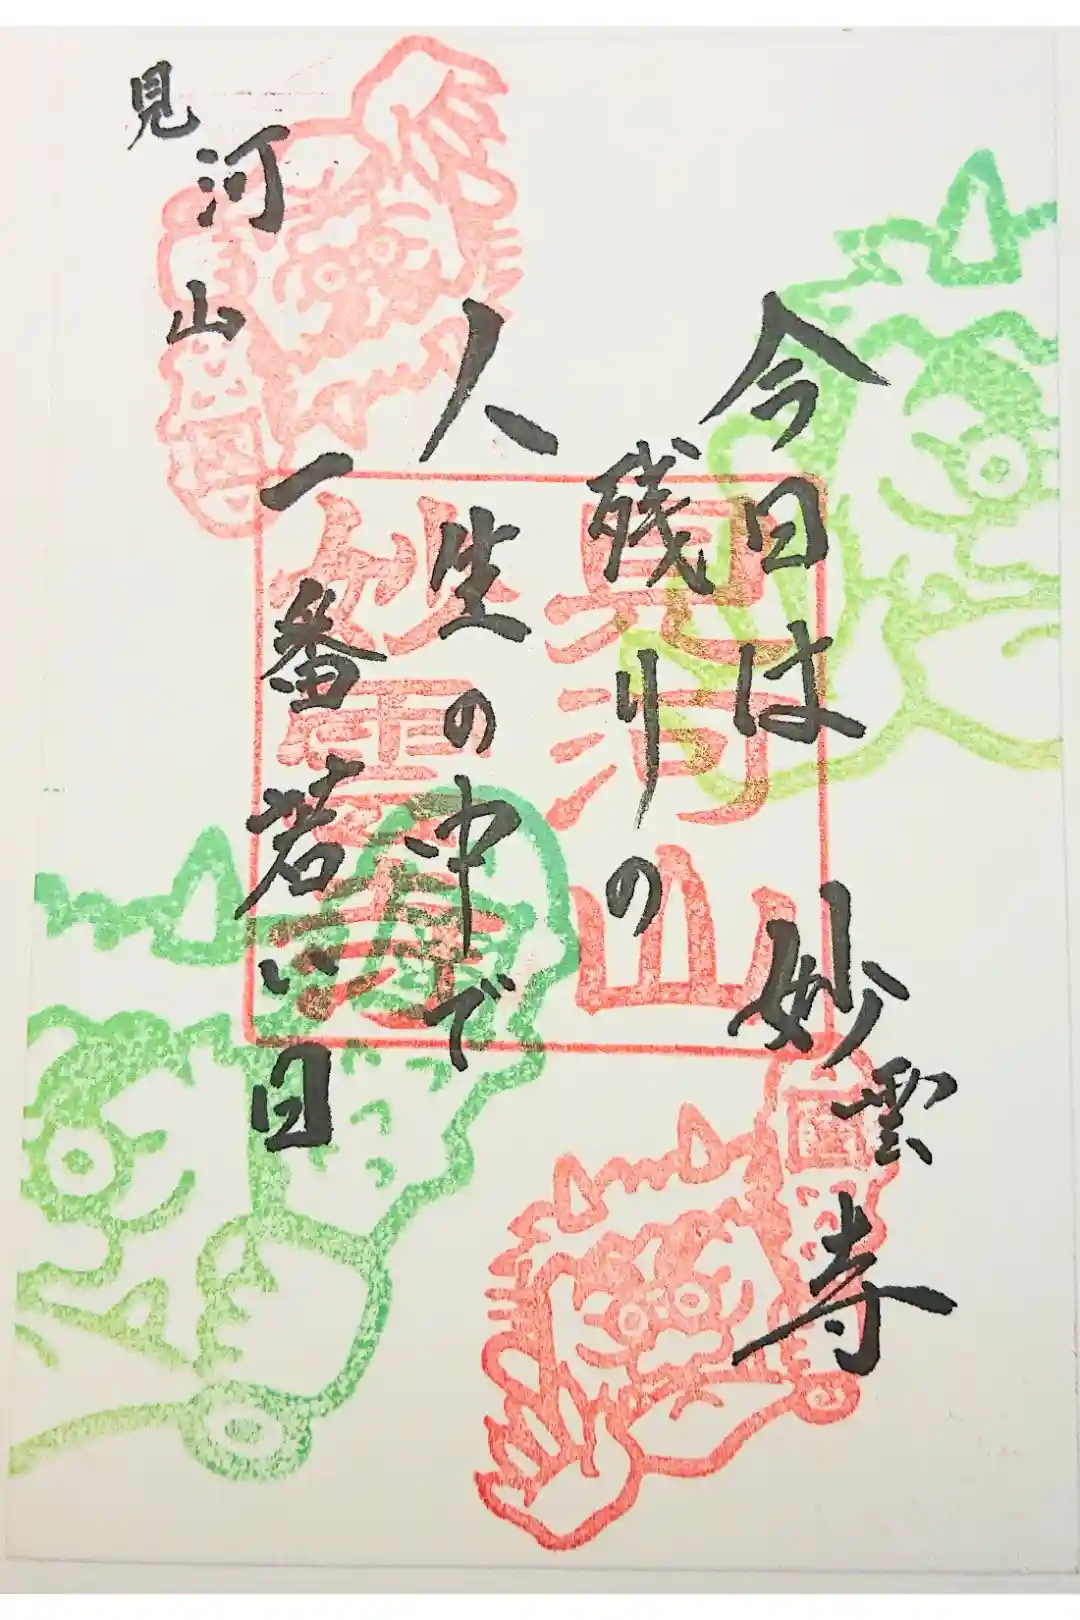 今日は
残りの
人生の中で
一番若い日
見河山
妙雲寺
見河山
妙雲寺